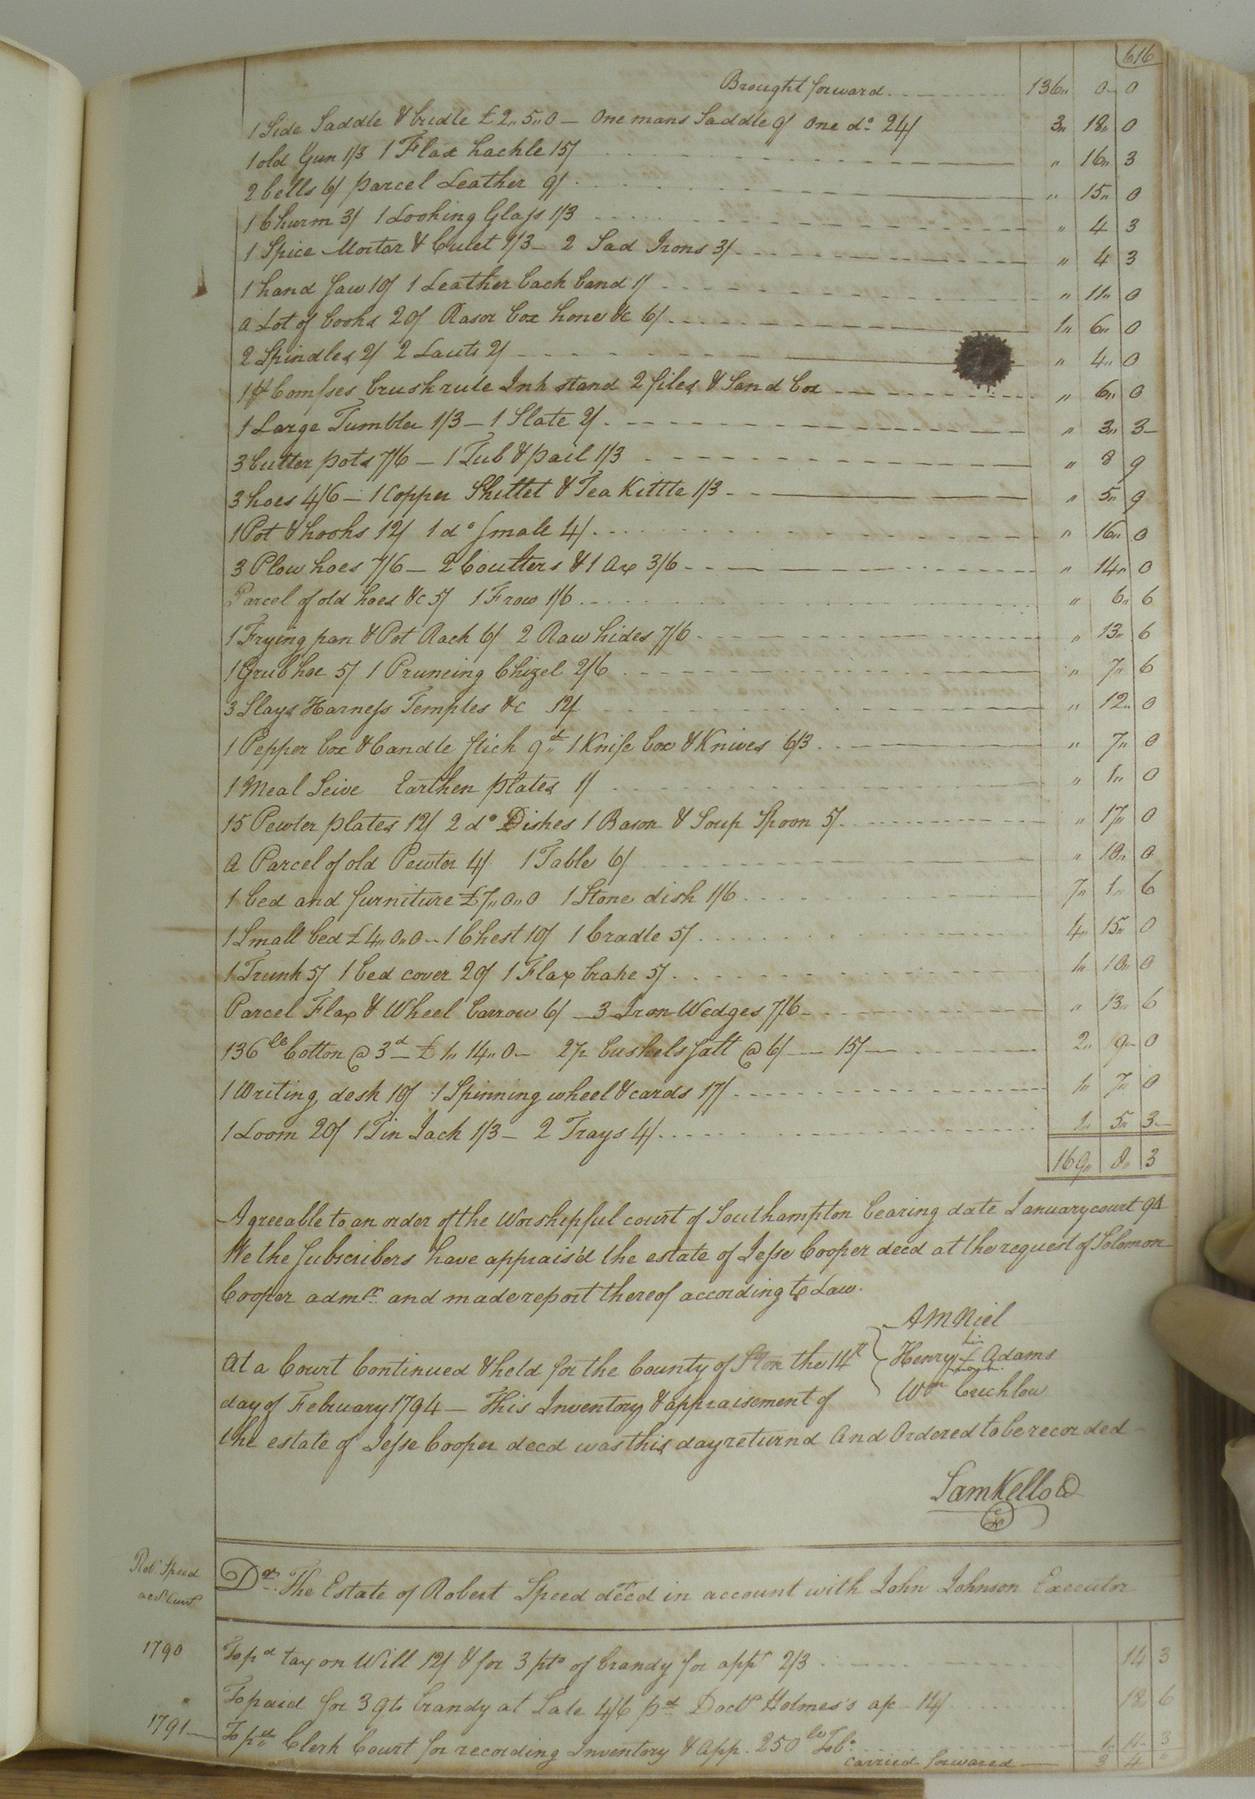 616
Brought forward 136 " 0 " 0
1 Side Saddle & bridle £2 " 5 " 0 — One mans Saddle 9/ One do 24/ 3 " 18 " 0
1 old Gun 1/3 1 Flax hackle 15/ " 16 " 3
2 bells 6/ parcel Leather 9/ " 15 " 0
1 Churm 3/ 1 Looking Glass 1/3 " 4 3
1 Spice Mortar & Cruet 1/3 — 2 Sad Irons 3/ " 4 3
1 hand saw 10/ 1 Leather back band 1/ " 11 " 0
a Lot of books 20/ Rasor box hone &c 6/ 1 " 6 " 0
2 Spindles 2/ 2 2/ " 4 " 0
1 brush rule Ink stand 2 files & Sand box " 6 " 0
1 Large Tumbler 1/3 — 1 Slate 2/ " 3 " 3
3 butter pots 7/6 — 1 Tub & pail 1/3 " 8 9
3 hoes 4/6 — 1 Copper Skillet & Tea Kittle 1/3 " 5 " 9
1 Pot & hooks 12/ 1 do smale 4/ " 16 " 0
3 Plow hoes 7/6 — 2 Coulters & 1 Ax 3/6 " 14 " 0
Parcel of old hoes &c 5/ 1 Frow 1/6 " 6 " 6
1 Frying pan & Pot Rack 6/ 2 Raw hides 7/6 " 13 " 6
1 Grub hoe 5/ 1 Pruneing Chizel 2/6 " 7 " 6
3 Slays Harness Temples &c 12/ " 12 " 0
1 Pepper box & Candle stick 9d 1 Knife box & Knives 6/3 " 7 " 0
1 Meal Seive Earthen plates 1/ " 1 " 0
15 Pewter plates 12/ 2 do Dishes 1 Bason & Soup Spoon 5/ " 17 " 0
a Parcel of old Pewter 4/ 1 Table 6/ " 10 " 0
1 bed and furniture £7 " 0 " 0 1 Stone dish 1/6 7 " 1 " 6
1 Small bed £4 " 0 " 0 — 1 Chest 10/ 1 Cradle 5/ 4 " 15 " 0
1 Trunk 5/ 1 bed cover 20/ 1 Flax brake 5/ 1 " 10 " 0
Parcel Flax & Wheel barrow 6/ — 3 Iron Wedges 7/6 " 13 " 6
136 lb Cotton @ 3d — £1 " 14 " 0 — 2½ bushels salt @ 6/ — 15/ — 2 " 9 " 0
1 Writing desk 10/ 1 Spinning wheel & cards 17/ 1 " 7 " 0
1 Loom 20/ 1 Tin Jack 1/3 — 2 Trays 4/ 1 " 5 " 3
169 " 8 " 3
Agreeable to an order of the Worshipful court of Southampton bearing date January court 94
We the Subscribers have appraisd the estate of Jesse Cooper decd at the request of Solomon
Cooper admr. and made report thereof according to Law.
A MNiel
At a Court Continued & held for the County of Ston the 14th Henry his + mark Adams
day of February 1794 — This Inventory & appraisement of Wm Crichlow
the estate of Jesse Cooper decd was this day returnd And Ordered to be recorded
Sam Kello
Robt Speed
acct Curt
Dr. The Estate of Robert Speed decd in account with John Johnson Executor
1790 To pd tax on Will 12/ & for 3 pts of brandy for appt 2/3 14 3
" To paid for 3 qts brandy at Sale 4/6 pd Doctr Holmes's ac 14/ 18 6
1791 To pd Clerk Court for recording Inventory & App. 250 lbs Tobo. 1 " 11 " 3
carried forward 3 4 "